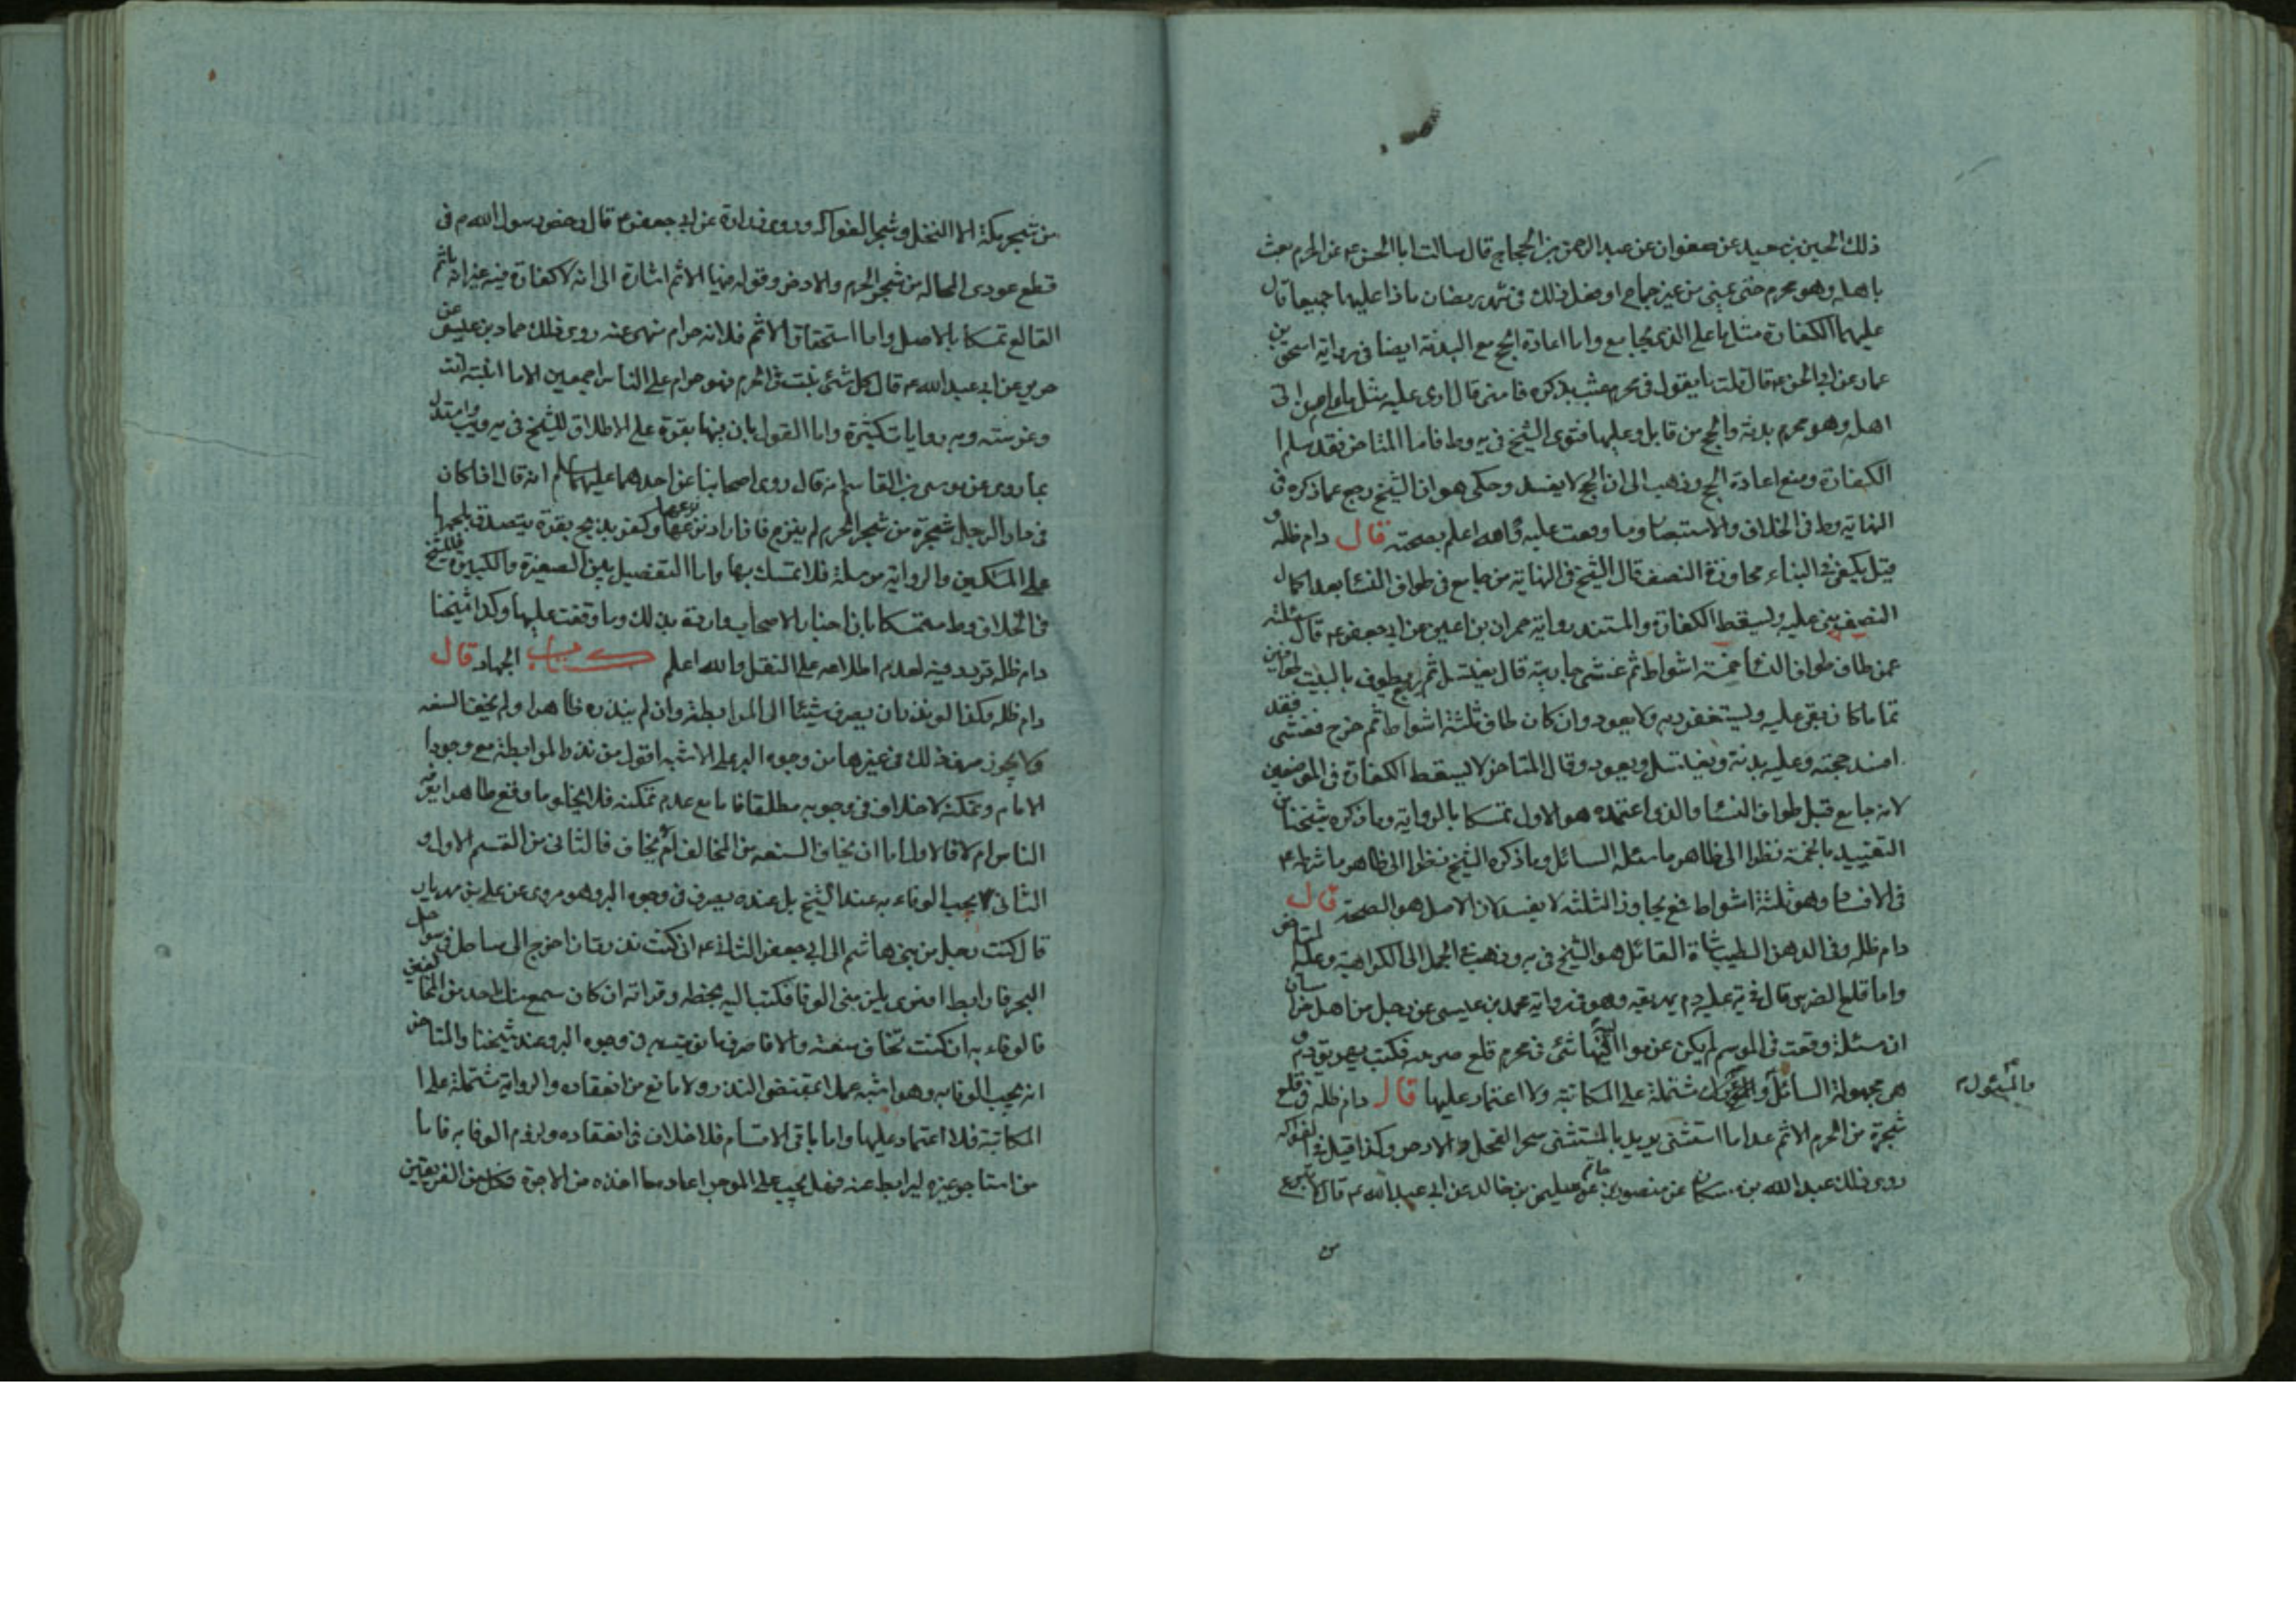 ذلك الحسين بن سعيد عن صفوان عن عبد الرحمن بن الحجاج قال سالت ابا الحسن ع عن المحرم يعبث
باهله وهو محرم حتى يمنى من غير جماع او يفعل ذلك فى شهر رمضان ماذا عليهما جميعا قال
عليهما الكفارة مثل ما على الذى يجامع واما اعادة الحج مع البدنة ايضا فى رواية اسحق بن
عمار عن ابى الحسن ع قال قلت ما يقول فى محرم عبث بذكره فامنى قال ارى عليه مثل ما على من اتى
اهله وهو محرم بدنة والحج من قابل وعليها فتوى الشيخ فى يه وط فاما المتاخر فقد سلم
الكفارة ومنع اعادة الحج وذهب الى ان الحج لا يفسد وحكى هو ان الشيخ رجع عما ذكره فى
النهاية وط فى الخلاف والاستبصار وما وقعت عليه والله اعلم بصحته قال دام ظله و
قيل يكفى فى البناء مجاوزة النصف قال الشيخ فى النهاية من جامع فى طواف النسا بعد اكمال
النصف بنى عليه ولسقط الكفارة والمستند رواية حمران بن اعين عن ابى جعفر ع قال سئلته
عمن طاف طواف النسا خمسة اشواط ثم غشى جاريته قال يغتسل ثم يرجع يطوف بالبيت طوافين
تمام ما كان بقى عليه وليستغفر ربه ولا يعود وان كان طاف ثلثة اشواط ثم خرج فغشى فقد
افسد حجته وعليه بدنة ويغتسل ويعود وقال المتاخر لا يسقط الكفارة فى الموضعين
لانه جامع قبل طواف النسا والذى اعتمده هو الاول تمسكا بالرواية وما ذكره شيخنا من
التقييد بالخمسة نظرا الى ظاهر ما سئله السائل وما ذكره الشيخ نظرا الى ظاهر ما شرط ع
فى الافساد وهو ثلثة اشواط فمع تجاوز الثلثة لا يفسد لان الاصل هو الصحة قال
دام ظله وفى الدهن الطيب شاة القائل هو الشيخ فى يه وذهب فى الجمل الى الكراهية وعليه المتاخر
واما قلع الضرس قال فى يه عليه دم يهريقه وهو فى رواية محمد بن عيسى عن رجل من اهل خراسان
ان مسئلة وقعت فى الموسم لم يكن عند مواليه فيها شئ فى محرم قلع ضرسه فكتب يهريق دم و
هى مجهولة السائل مشتملة على المكاتبة ولا اعتماد عليها قال دام ظله فى قلع
والمسئول م
شجرة من الحرم الاثم عدا ما استثنى يريد بالمستثنى شجر النخل والاذخر وكذا قيل فى الفواكه
روى ذلك عبد الله بن مسكان عن منصور بن حازم عن سليمن بن خالد عن ابى عبد الله ع قال لا ينزع
من
من شجر مكة الا النخل وشجر الفواكه وروى زرارة عن ابى جعفر ع قال رخص رسول الله ص فى
قطع عودى المحالة من شجر الحرم والاذخر وقوله فيها الاثم اشارة الى انه لا كفارة فيه غير انه ياثم
القالع تمسكا بالاصل واما استحقاق الاثم فلانه حرام منهى عنه روى ذلك حماد بن عيسى عن
حريز عن ابى عبد الله ع قال كل شئ ينبت فى الحرم فهو حرام على الناس اجمعين الا ما انبته انت
وغرسته وبه روايات كثيرة واما القول بان فيها بقرة على الاطلاق للشيخ فى يه وط واستدل
بما روى عن موسى بن القاسم انه قال روى اصحابنا عن احدهما عليهما سلم انه قال اذا كان
فى دار الرجل شجرة من شجر الحرم لم ينزع فاذا اراد نزعها نزعها وكفر بذبح بقرة يتصدق بلحمها
على المسكين والرواية مرسلة فلا تمسك بها واما التفصيل بين الصغيرة والكبيرة فللشيخ
فى الخلاف وط متمسكا بان اخبار الاصحاب واردة بذلك وما وقفت عليها وكذا شيخنا
دام ظله تردد فيه لعدم اطلاعه على النقل والله اعلم كتاب الجهاد قال
دام ظله وكذا لو نذر ان يصرف شيئا الى المرابطة وان لم ينذره ظاهرا ولم يخف الشنعه
ولا يجوز صرف ذلك فى غيرها من وجوه البر على الاشبه اقول من نذر المرابطة مع وجود
الامام وتمكنه لا خلاف فى وجوبه مطلقا فاما مع عدم تمكنه فلا يخلو ما وقع ظاهرا يعرفه
الناس ام لا فالاول اما ان يخاف الشنعه من المخالف ام لا يخاف فالثانى من القسم الاول و
الثانى لا يجب الوفاء به عند الشيخ بل عنده يصرف فى وجوه البر وهو مروى عن على بن مهزيار
قال كتب رجل من بنى هاشم الى ابى جعفر الثانى ع انى كنت نذرت ان اخرج الى ساحل من سواحل
البحر فارابط افترى يلزمنى الوفا فكتب اليه بخطه وقراته ان كان سمع منك احد من المخالفين
فالوفاء به ان كنت تخاف شنعته والا فاصرف ما نويته فى وجوه البر وعند شيخنا والمتاخر
انه يجب الوفا به وهو اشبه عملا بمقتضى النذر ولا مانع من انعقاده والرواية مشتملة على
المكاتبة فلا اعتماد عليها واما باقى الاقسام فلا خلاف فى انعقاده ولزوم الوفا به فاما
من استاجر غيره ليرابط عنه فهل يجب على الموجر اعاده ما اخذه من الاجرة فكل من الفريقين